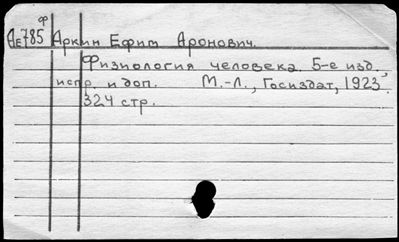 Ф
Ае785 Аркин Ефим Аронович.
Физиология человека. 5-е изд.,
испр. и доп. М.-Л., Госиздат, 1923.
324 стр.